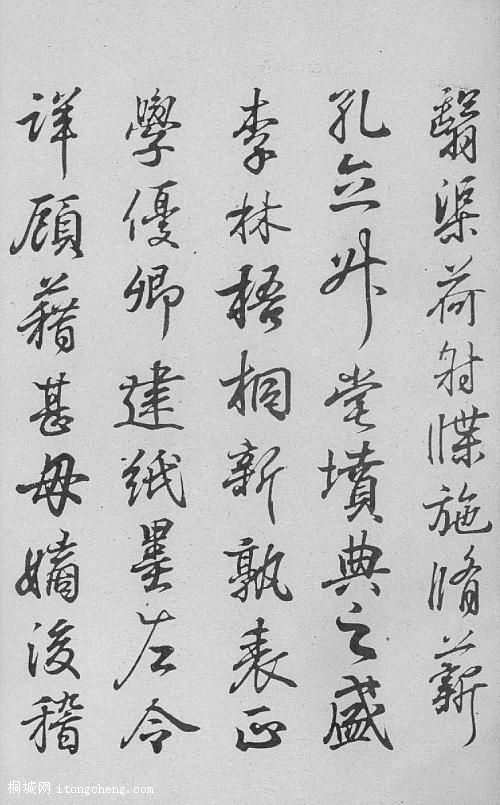 翳渠荷射牒施脩薪
孔立升堂墳典之盛
李林梧桐新孰表正
學優卿建紙墨左令
詳顧藉甚毋嫡後稽
桐城网 itongcheng.com